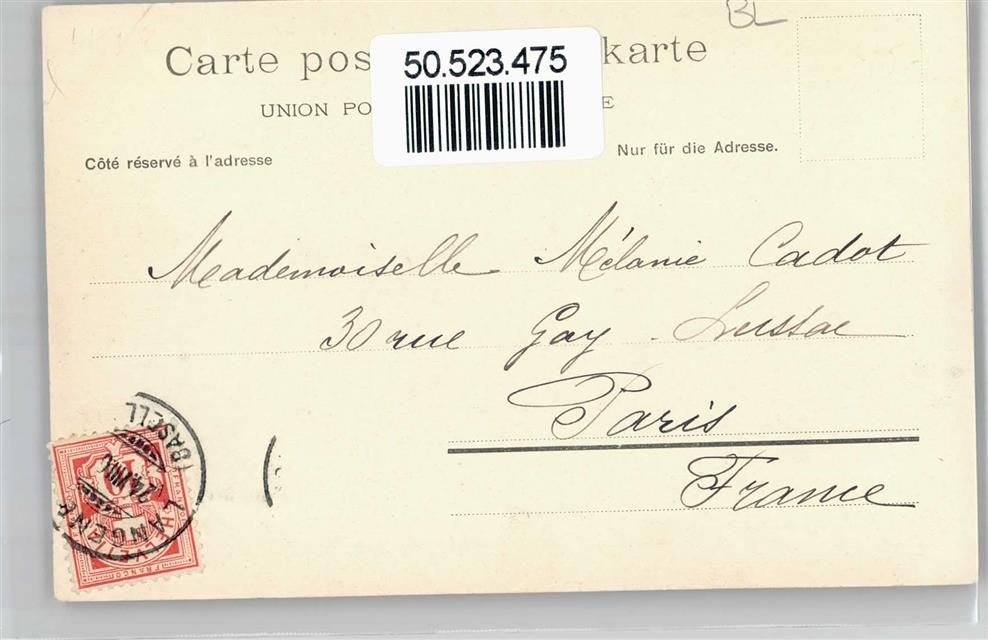 BL
Carte pos karte
50.523.475
UNION PO E
Côté réservé à l'adresse
Nur für die Adresse.
Mademoiselle Mélanie Cadot
30 rue Gay-Lussac
Paris
France
LANGENB (BASELL
24.VIII
HELVETIA
FRANCO
10